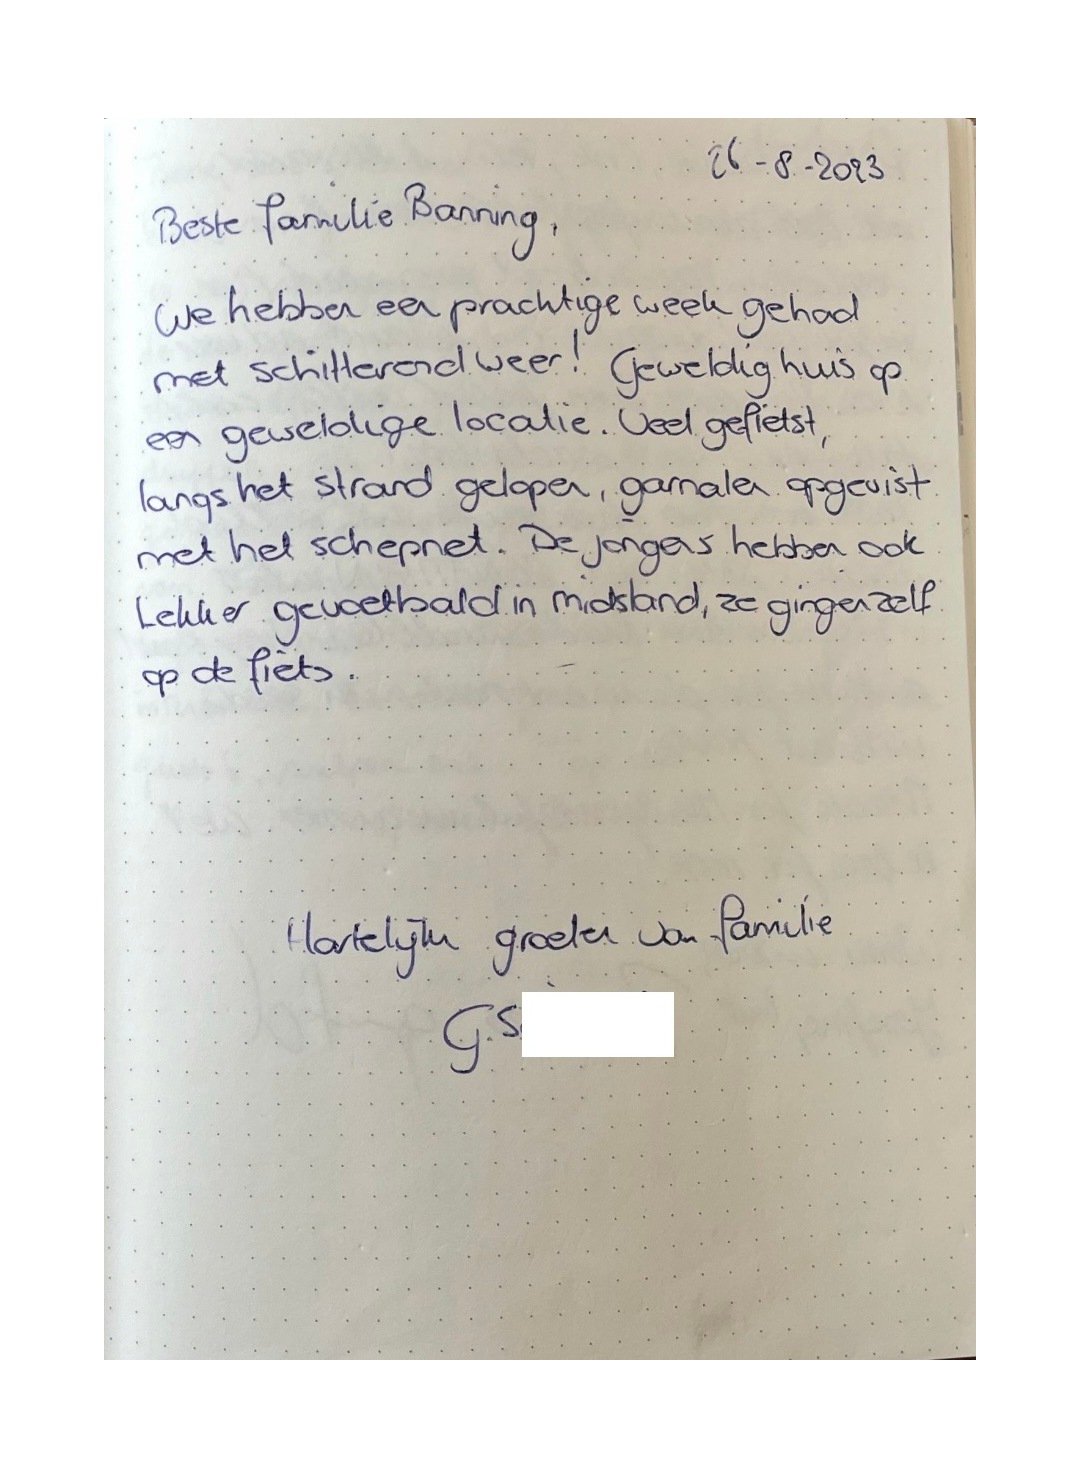 26-8-2023
Beste familie Banning,
We hebben een prachtige week gehad
met schitterend weer! Geweldig huis op
een geweldige locatie. Veel gefietst,
langs het strand gelopen, garnalen opgevist
met het schepnet. De jongens hebben ook
Lekker gevoetbald in midsland, ze gingen zelf
op de fiets.
Hartelijk groeten van familie
G.S